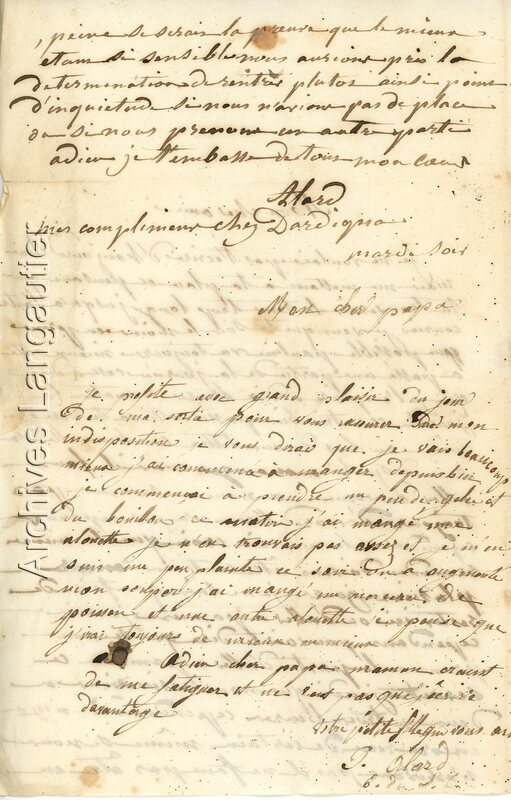 peine se serais la preuve que le mieux
etant si sensible nous aurions pris la
determination de rentrer plutos ainsi point
d'inquietude si nous n'avions pas de place
ou si nous prenons un autre parti
adieu je t'embasse de tous mon cœur
Alard
mes complimens chez Dardigna
mardi soir
Mon cher papa
je profite avec grand plaisir du jour
de ma sortie pour vous rasurer sur mon
indisposition je vous dirai que je vais beaucoup
mieux j'ai commencé a manger depuis hier
je commencai à prendre un peu de gelée et
du bouillon ce matin j'ai mangé une
alouette je n'en trouvais pas assez et je m'en
suis une peu plainte ce soir on a augmenté
mon souper j'ai mangé un morceau de
poisson et une autre alouette je pense que
j'irai toujours de mieux en mieux
Adieu cher papa maman craint
de me fatiguer et ne veut pas que j'écrive
davantage
votre petite fille qui vous
J. Alard
Archives Langautier